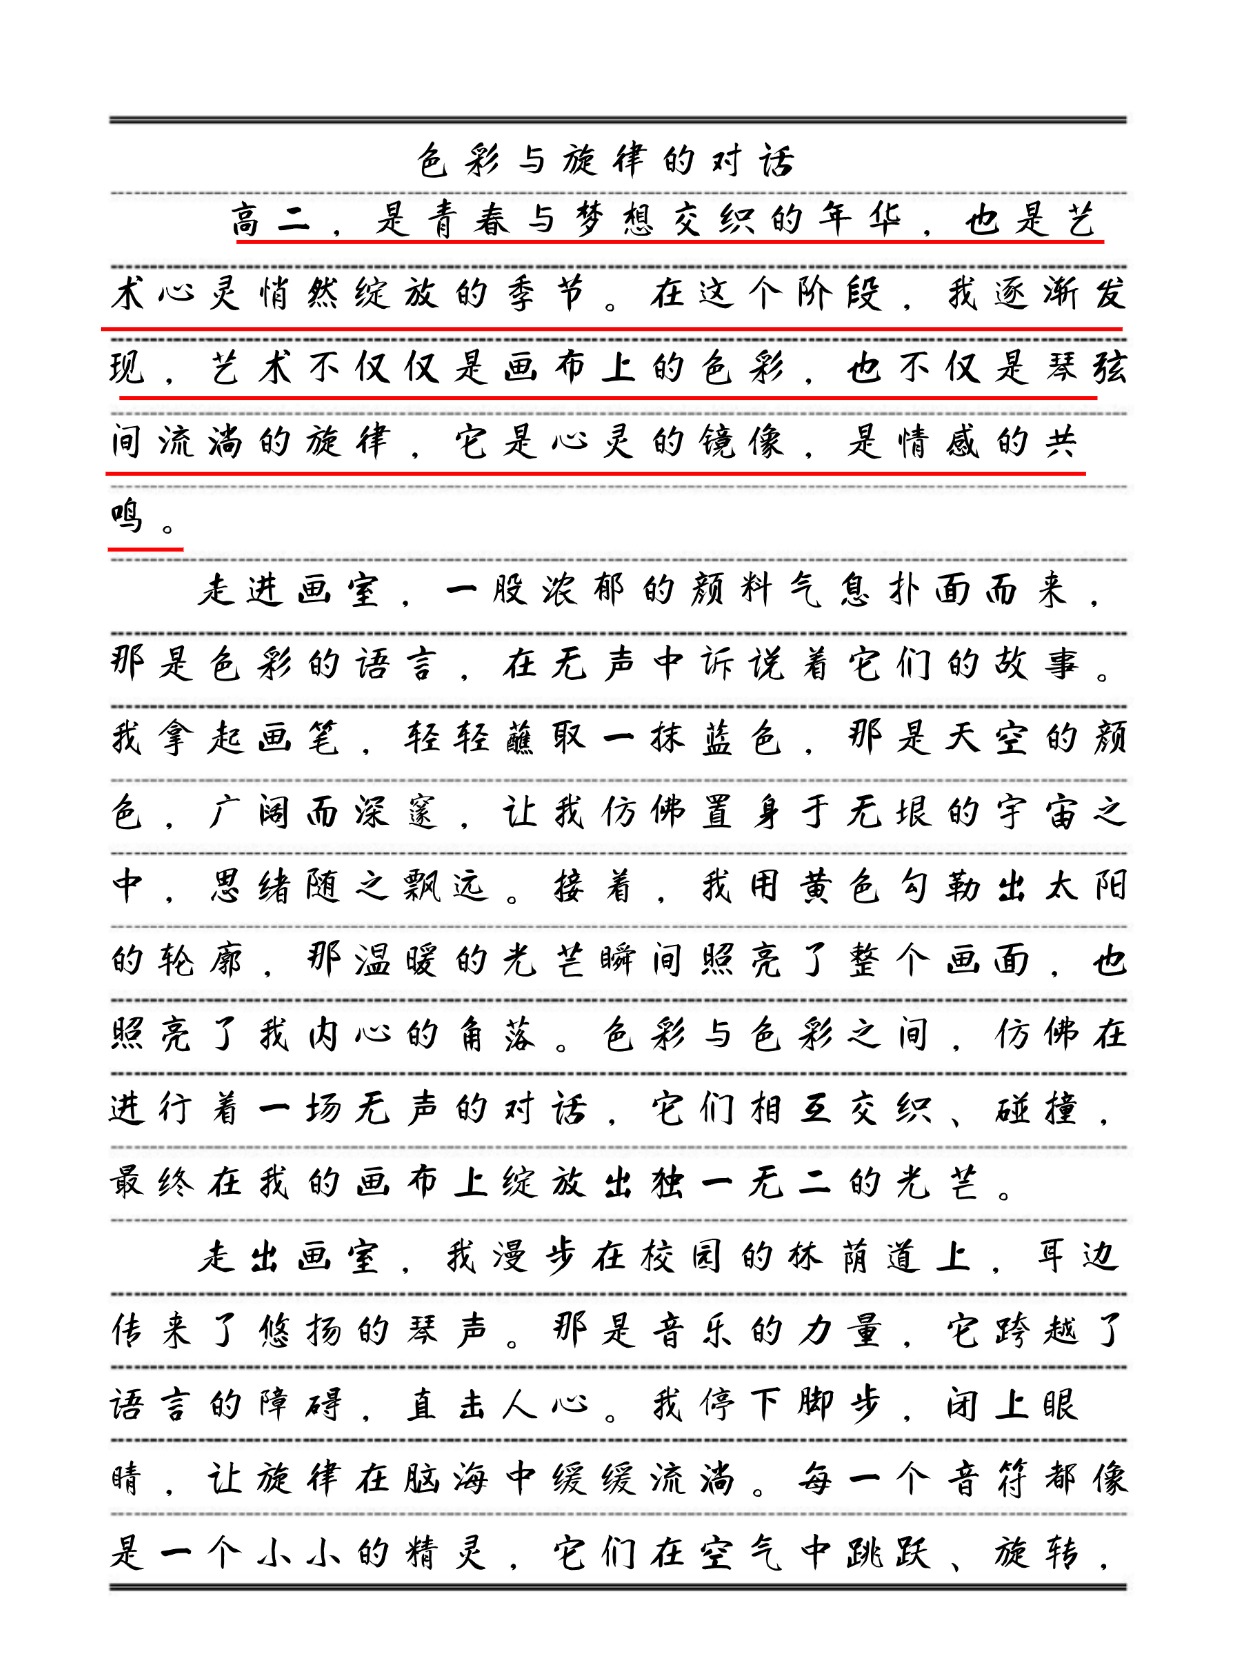 色彩与旋律的对话
高二，是青春与梦想交织的年华，也是艺
术心灵悄然绽放的季节。在这个阶段，我逐渐发
现，艺术不仅仅是画布上的色彩，也不仅是琴弦
间流淌的旋律，它是心灵的镜像，是情感的共
鸣。
走进画室，一股浓郁的颜料气息扑面而来，
那是色彩的语言，在无声中诉说着它们的故事。
我拿起画笔，轻轻蘸取一抹蓝色，那是天空的颜
色，广阔而深邃，让我仿佛置身于无垠的宇宙之
中，思绪随之飘远。接着，我用黄色勾勒出太阳
的轮廓，那温暖的光芒瞬间照亮了整个画面，也
照亮了我内心的角落。色彩与色彩之间，仿佛在
进行着一场无声的对话，它们相互交织、碰撞，
最终在我的画布上绽放出独一无二的光芒。
走出画室，我漫步在校园的林荫道上，耳边
传来了悠扬的琴声。那是音乐的力量，它跨越了
语言的障碍，直击人心。我停下脚步，闭上眼
睛，让旋律在脑海中缓缓流淌。每一个音符都像
是一个小小的精灵，它们在空气中跳跃、旋转，